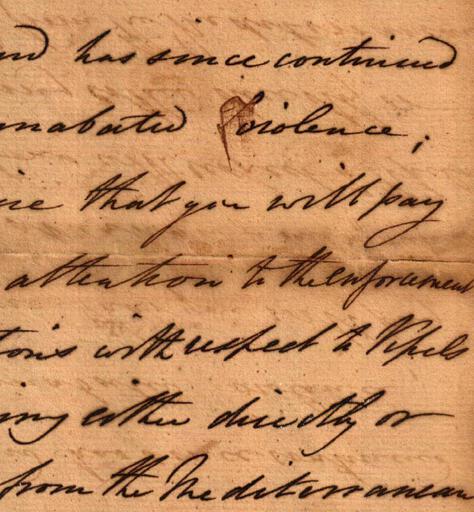 nd has since continued
nabated violence;
ise that you will pay
attention to the enforcement
tions with respect to Vessels
ing either directly or
from the Mediterranean